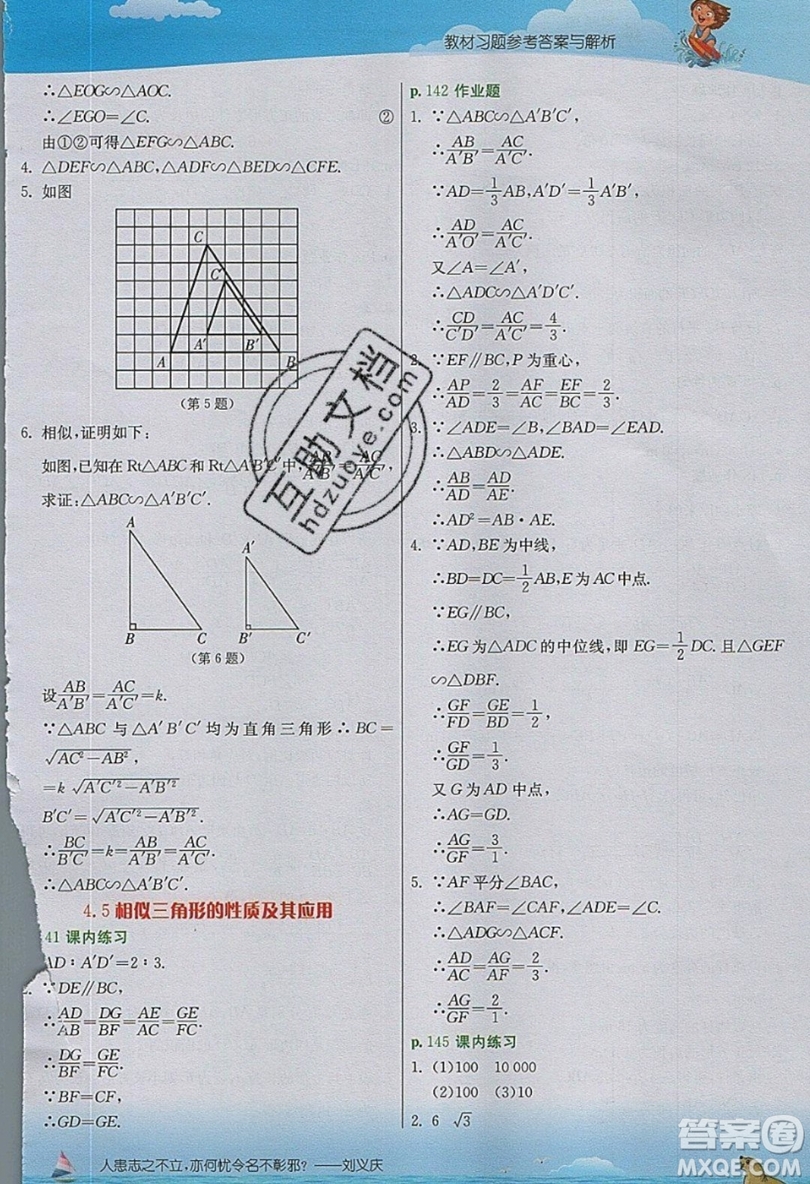 教材习题参考答案与解析
∴△EOG∽△AOC.
∴∠EGO=∠C. ②
由①②可得△EFG∽△ABC.
4. △DEF∽△ABC,△ADF∽△BED∽△CFE.
5. 如图
C
C′
A′ B′
A B
(第5题)
6. 相似,证明如下:
如图,已知在Rt△ABC和Rt△A′B′C′中,AB/A′B′=AC/A′C′,
求证:△ABC∽△A′B′C′.
A
A′
B C B′ C′
(第6题)
设AB/A′B′=AC/A′C′=k.
∵△ABC与△A′B′C′均为直角三角形∴BC=
√(AC²−AB²),
=k √(A′C′²−A′B′²)
B′C′=√(A′C′²−A′B′²).
∴BC/B′C′=k=AB/A′B′=AC/A′C′.
∴△ABC∽△A′B′C′.
4.5 相似三角形的性质及其应用
41 课内练习
AD∶A′D′=2∶3.
∵DE∥BC,
∴AD/AB=DG/BF=AE/AC=GE/FC.
∴DG/BF=GE/FC.
∵BF=CF,
∴GD=GE.
p.142 作业题
1. ∵△ABC∽△A′B′C′,
∴AB/A′B′=AC/A′C′.
∵AD=1/3AB,A′D′=1/3A′B′,
∴AD/A′O′=AC/A′C′.
又∠A=∠A′,
∴△ADC∽△A′D′C′.
∴CD/C′D′=AC/A′C′=4/3.
2. ∵EF∥BC,P为重心,
∴AP/AD=2/3=AF/AC=EF/BC=2/3.
3. ∵∠ADE=∠B,∠BAD=∠EAD.
∴△ABD∽△ADE.
∴AB/AD=AD/AE.
∴AD²=AB·AE.
4. ∵AD,BE为中线,
∴BD=DC=1/2AB,E为AC中点.
∵EG∥BC,
∴EG为△ADC的中位线,即EG=1/2DC.且△GEF
∽△DBF.
∴GF/FD=GE/BD=1/2.
∴GF/GD=1/3.
又G为AD中点,
∴AG=GD.
∴AG/GF=3/1.
5. ∵AF平分∠BAC,
∴∠BAF=∠CAF.又∠ADE=∠C.
∴△ADG∽△ACF.
∴AD/AC=AG/AF=2/3.
∴AG/GF=2/1.
p.145 课内练习
1. (1)100 10 000
(2)100 (3)10
2. 6 √3
人患志之不立,亦何忧令名不彰邪?——刘义庆
互助文档
hdzuoye.com
答案圈
MXQE.COM